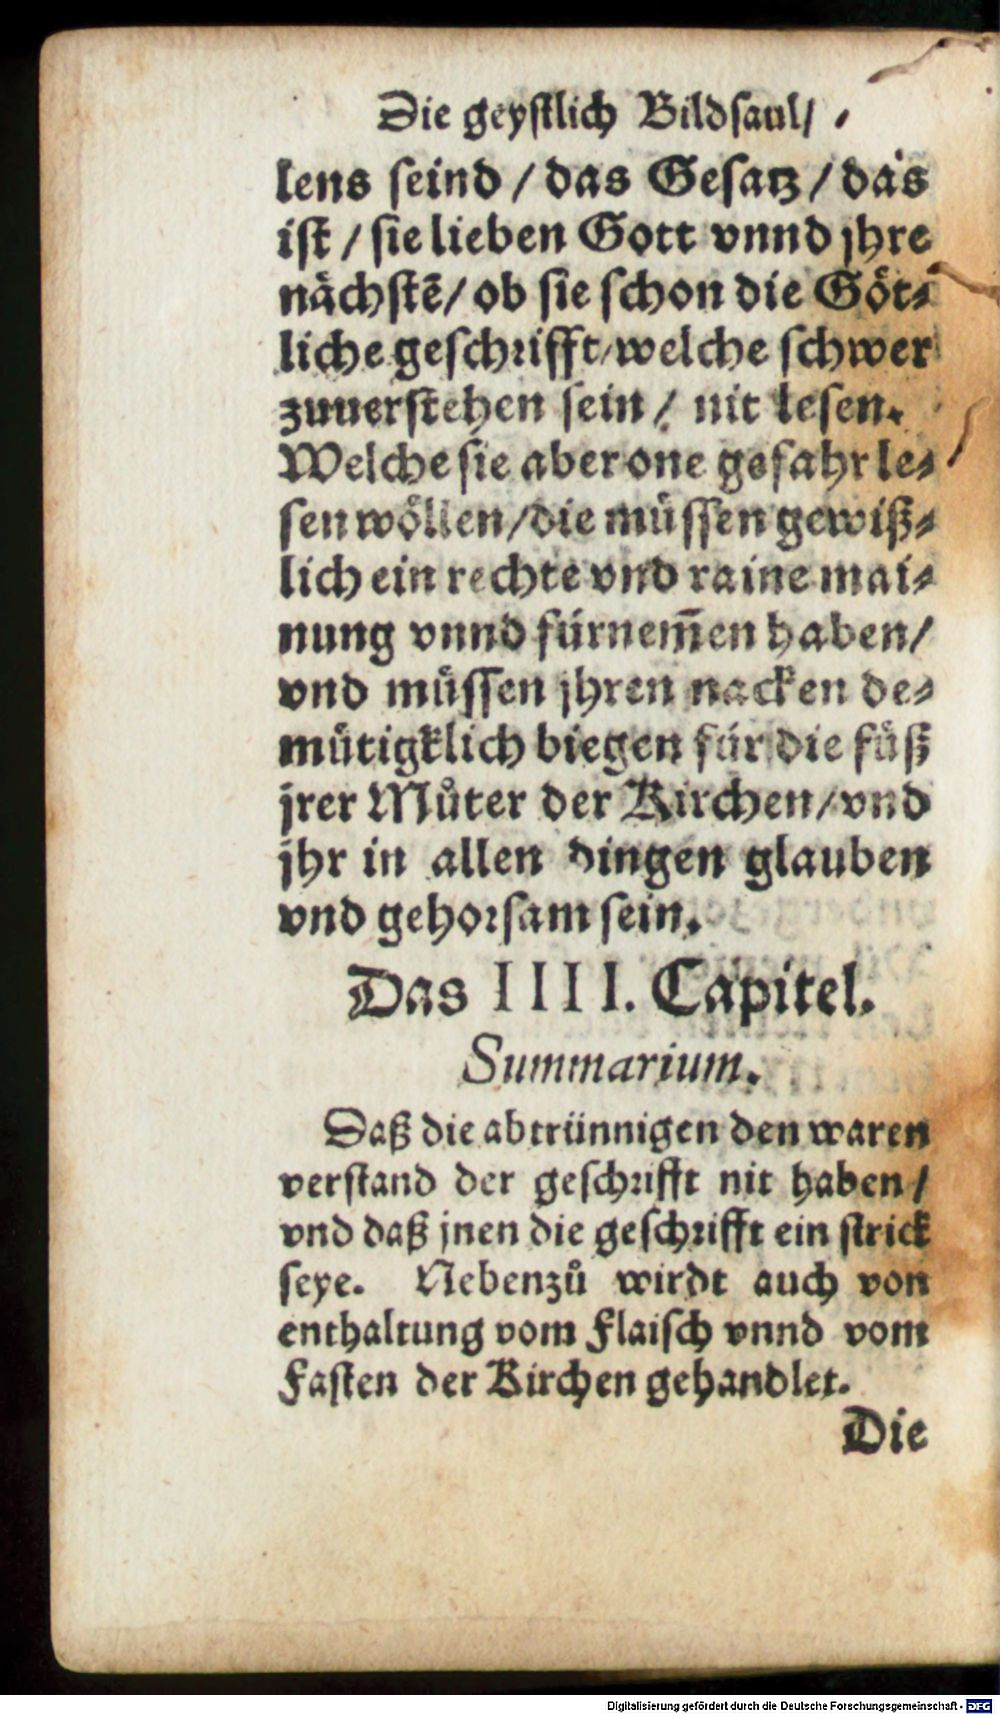 Die geystlich Bildsaul/
lens seind / das Gesatz / das
ist / sie lieben Gott vnnd jhre
nächstẽ / ob sie schon die Göt⸗
liche geschrifft / welche schwer
zuuerstehen sein / nit lesen.
Welche sie aber one gefahr le⸗
sen wöllen / die müssen gewiß⸗
lich ein rechte vnd raine mai⸗
nung vnnd fürnem̃en haben /
vnd müssen jhren nacken de⸗
mütigklich biegen für die füß
jrer Můter der Kirchen / vnd
jhr in allen dingen glauben
vnd gehorsam sein.
Das IIII. Capitel.
Summarium.
Daß die abtrünnigen den waren
verstand der geschrifft nit haben /
vnd daß jnen die geschrifft ein strick
seye. Nebenzů wirdt auch von
enthaltung vom Flaisch vnnd vom
Fasten der Kirchen gehandlet.
Die
Digitalisierung gefördert durch die Deutsche Forschungsgemeinschaft - DFG